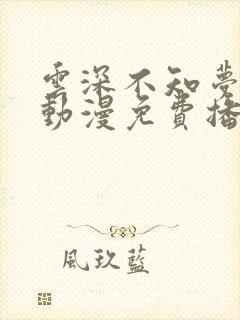 雲深不知夢
動漫免費播
風玖藍